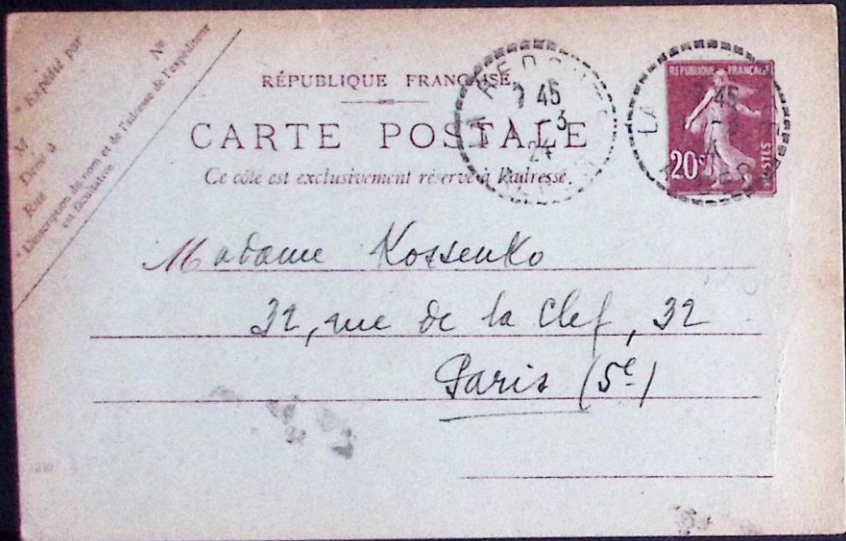 * Expédié par
M
Demt à
Rue Nº
* L'inscription du nom et de l'adresse de l'expéditeur
est facultative.
RÉPUBLIQUE FRANÇAISE
CARTE POSTALE
Ce côté est exclusivement réservé à l'adresse.
LA REDOUTE
7 45
-3
24
RÉPUBLIQUE FRANÇAISE
20c
POSTES
45
Madame Kossenko
32, rue de la Clef, 32
Paris (5e)